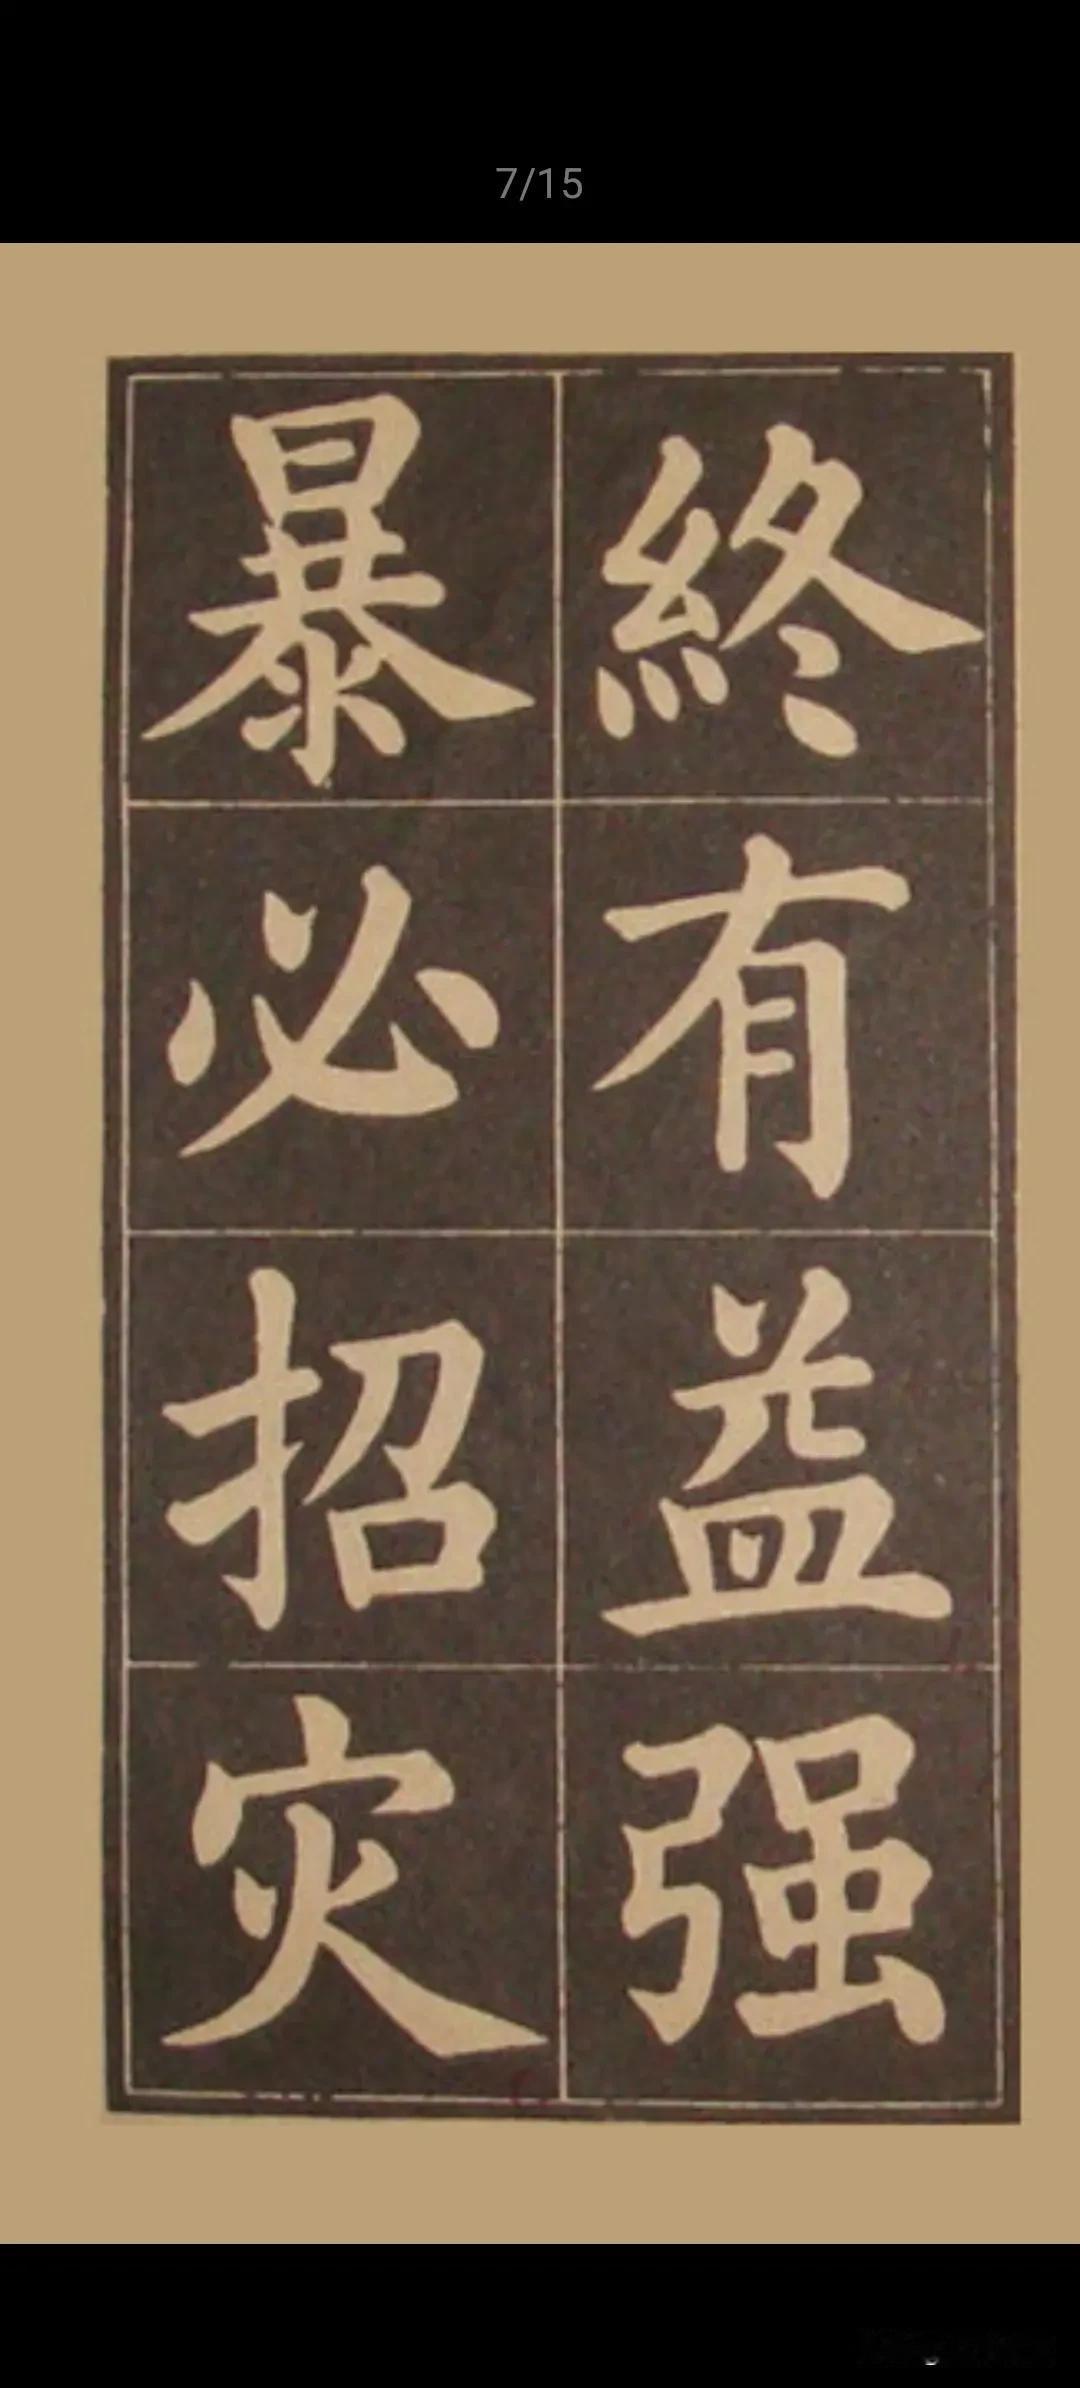 7/15
終有益强
暴必招灾